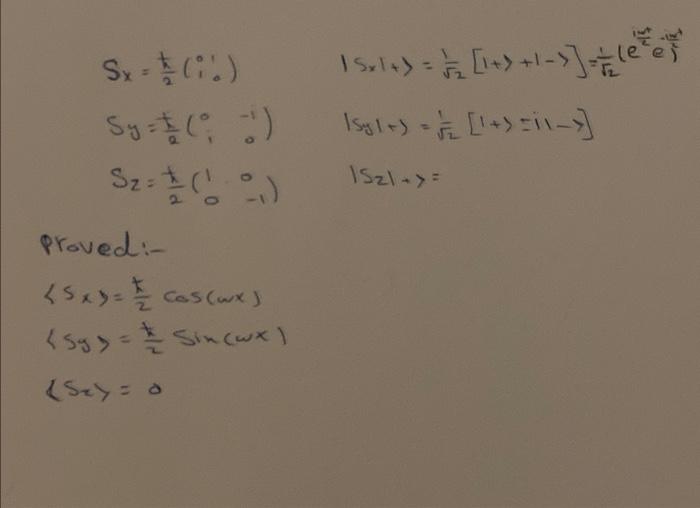 Sx = ħ/2 (0 1 1 0) |Sx|+> = 1/√2 [|+> + |->] = 1/√2 (e^{iωt/2} e^{-iωt/2})
Sy = ħ/2 (0 -i i 0) |Sy|+> = 1/√2 [|+> = i|->]
Sz = ħ/2 (1 0 0 -1) |Sz|+> =
Proved:-
<Sx> = ħ/2 cos(wx)
<Sy> = ħ/2 Sin(wx)
<Sz> = 0